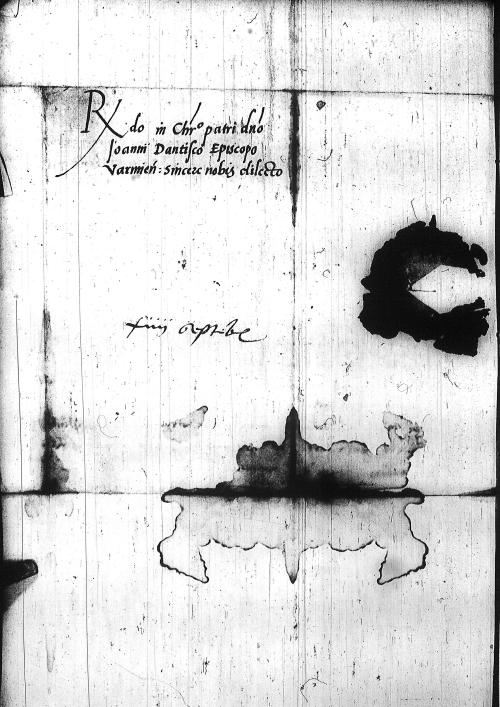 Rdo in Chro patri dno
Ioanni Dantisco Episcopo
Varmien: Sincere nobis dilecto